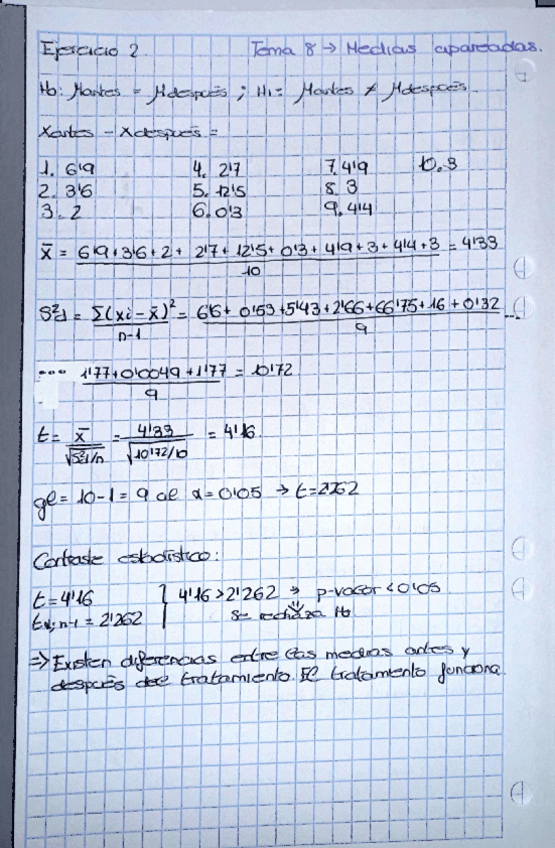 Ejercicio 2. Tema 8 → Medias apareadas.
H0: μantes = μdespués ; H1 = μantes ≠ μdespués.
Xantes - Xdespués =
1. 6'9 4. 2'7 7. 4'9 10. 3
2. 3'6 5. 12'5 8. 3
3. 2 6. 0'3 9. 4'4
x̄ = 6'9+3'6+2+ 2'7+12'5+0'3+4'9+3+4'4+3 = 4'33
10
S²d = Σ(xi - x̄)² = 6'6+ 0'53+5'43+2'66+66'75+16 + 0'32 ...
n-1 9
... 1'77+0'0049+1'77 = 10'72
9
t = x̄ = 4'33 = 4'16.
√S²d/n √10'72/10
gl = 10-1 = 9 al α = 0'05 → t=2'262
Contraste estadístico:
t = 4'16 } 4'16 > 2'262 → p-valor < 0'05
tα; n-1 = 2'262 se rechaza H0
⇒ Existen diferencias entre las medias antes y
después del tratamiento. El tratamiento funciona.